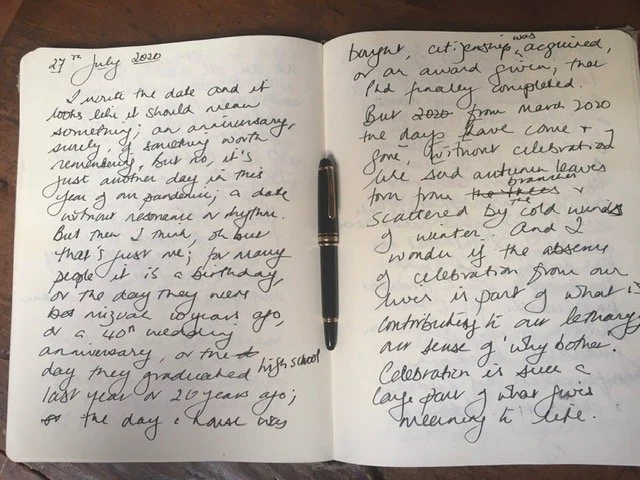 27th July 2020
I write the date and it
looks like it should mean
something; an anniversary,
surely, of something worth
remembering, but no, it's
just another day in this
year of our pandemic; a date
without resonance or rhythm.
But then I think, oh but
that's just me; for many
people it is a birthday
or the day they were
10 years ago,
or a 40th wedding
anniversary, or the
day they graduated high school
last year or 20 years ago;
or the day a house was
bought, citizenship was acquired,
or an award given, that
PhD finally completed.
But 2020 from march 2020
the days have come &
gone, without celebration
like sad autumn leaves
torn from the trees branches &
scattered by the cold winds
of winter. And I
wonder if the absence
of celebration from our
lives is part of what is
contributing to our lethargy
our sense of 'why bother'.
Celebration is such a
large part of what gives
meaning to life.